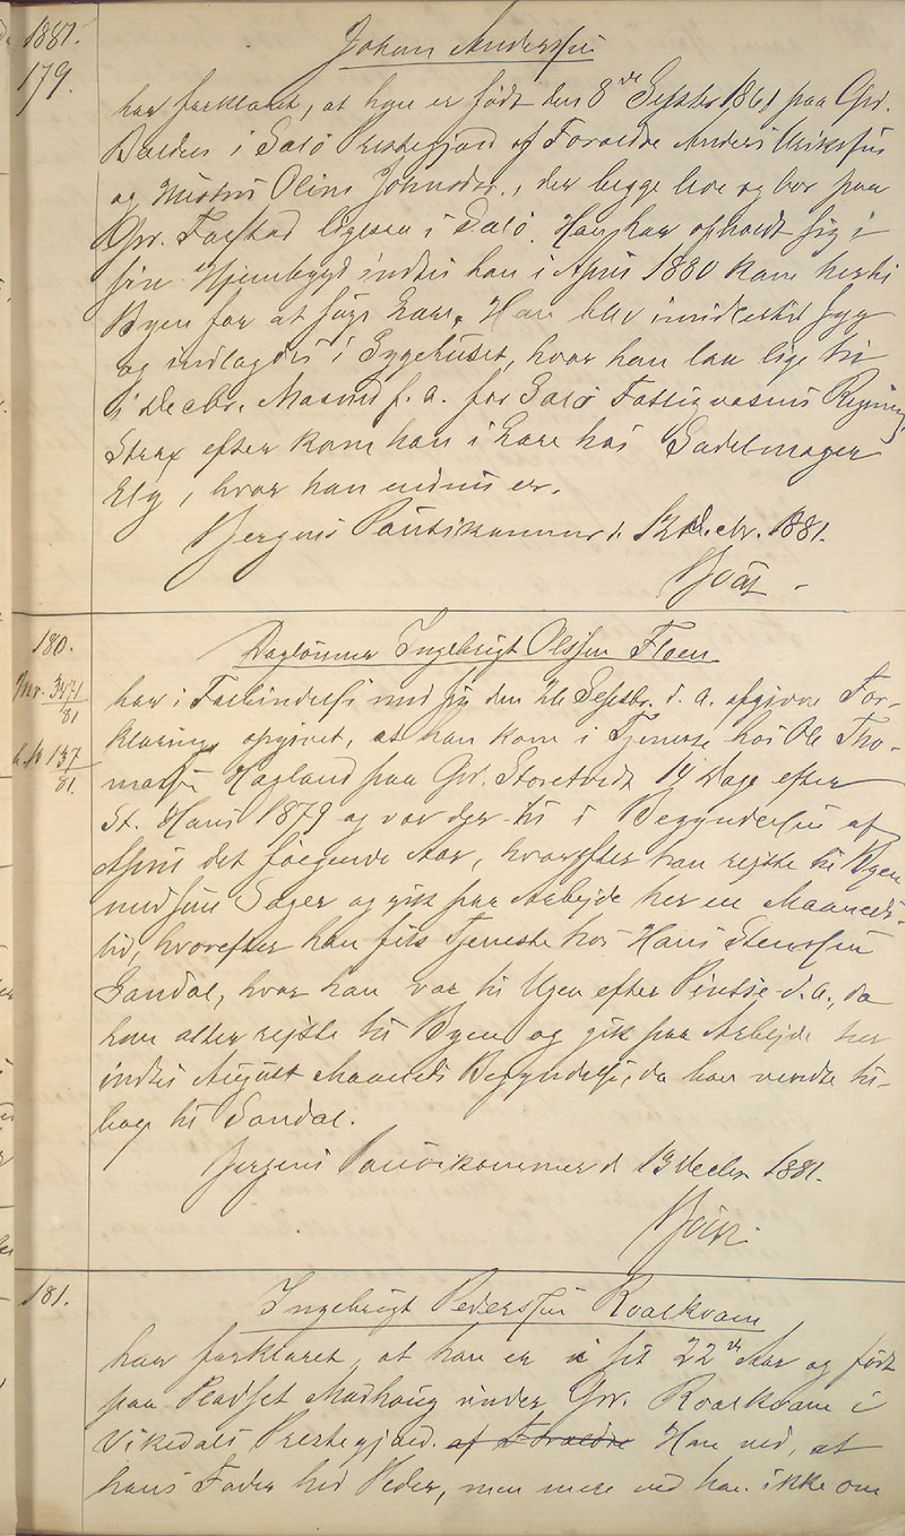 1881.
179.
Johan Anderssen
har forklaret, at han er født den 8de Septbr 1861 paa Grd.
i Præstegjæld af Forældre Anders
og Hustru Oline Johnsdtr., der begge leve og bor paa
Grd. Farstad ligesaa i. Han har opholdt sig i
sin Hjembygd indtil han i April 1880 kom hertil
Byen for at søge Lære. Han blev imidlertid syg
og indlagdes i Sygehuset, hvor han laa lige til
i Decbr. Maaned s. a. for Fattigvæsens Regning.
Strax efter kom han i Lære hos Sadelmager
Ely, hvor han endnu er.
Bergens Politikammer d. 12 Decbr. 1881.
180.
Jnr. 3471/81
137/81.
Daglønner Ingebrigt Olssen Floen
har i Forbindelse med sin den 26 Septbr. d. A. afgivne For-
klaring, opgivet, at han kom i Tjeneste hos Ole Tho-
massen Hagland paa Grd. Storetvedt 14 Dage efter
St. Hans 1879 og var der til i Begyndelsen af
April det følgende Aar, hvorefter han rejste til Byen
med sine Sager og gik paa Arbejde her en Maaneds-
tid, hvorefter han fik Tjeneste hos Hans Stenssen
Sandal, hvor han var til Ugen efter Pintse d. A., da
han atter rejste til Byen og gik paa Arbejde her
indtil August Maaneds Begyndelse, da han vendte til-
bage til Sandal.
Bergens Politikammer d 13 Decbr 1881.
181.
Ingebrigt Pederssen Roalkvam
har forklaret, at han er i sit 22de Aar og født
paa Pladset Madhaug under Grd. Roalkvam i
Vikedals Præstegjæld. af Forældre Han ved, at
hans Fader hed Peder, men mere ved han ikke om